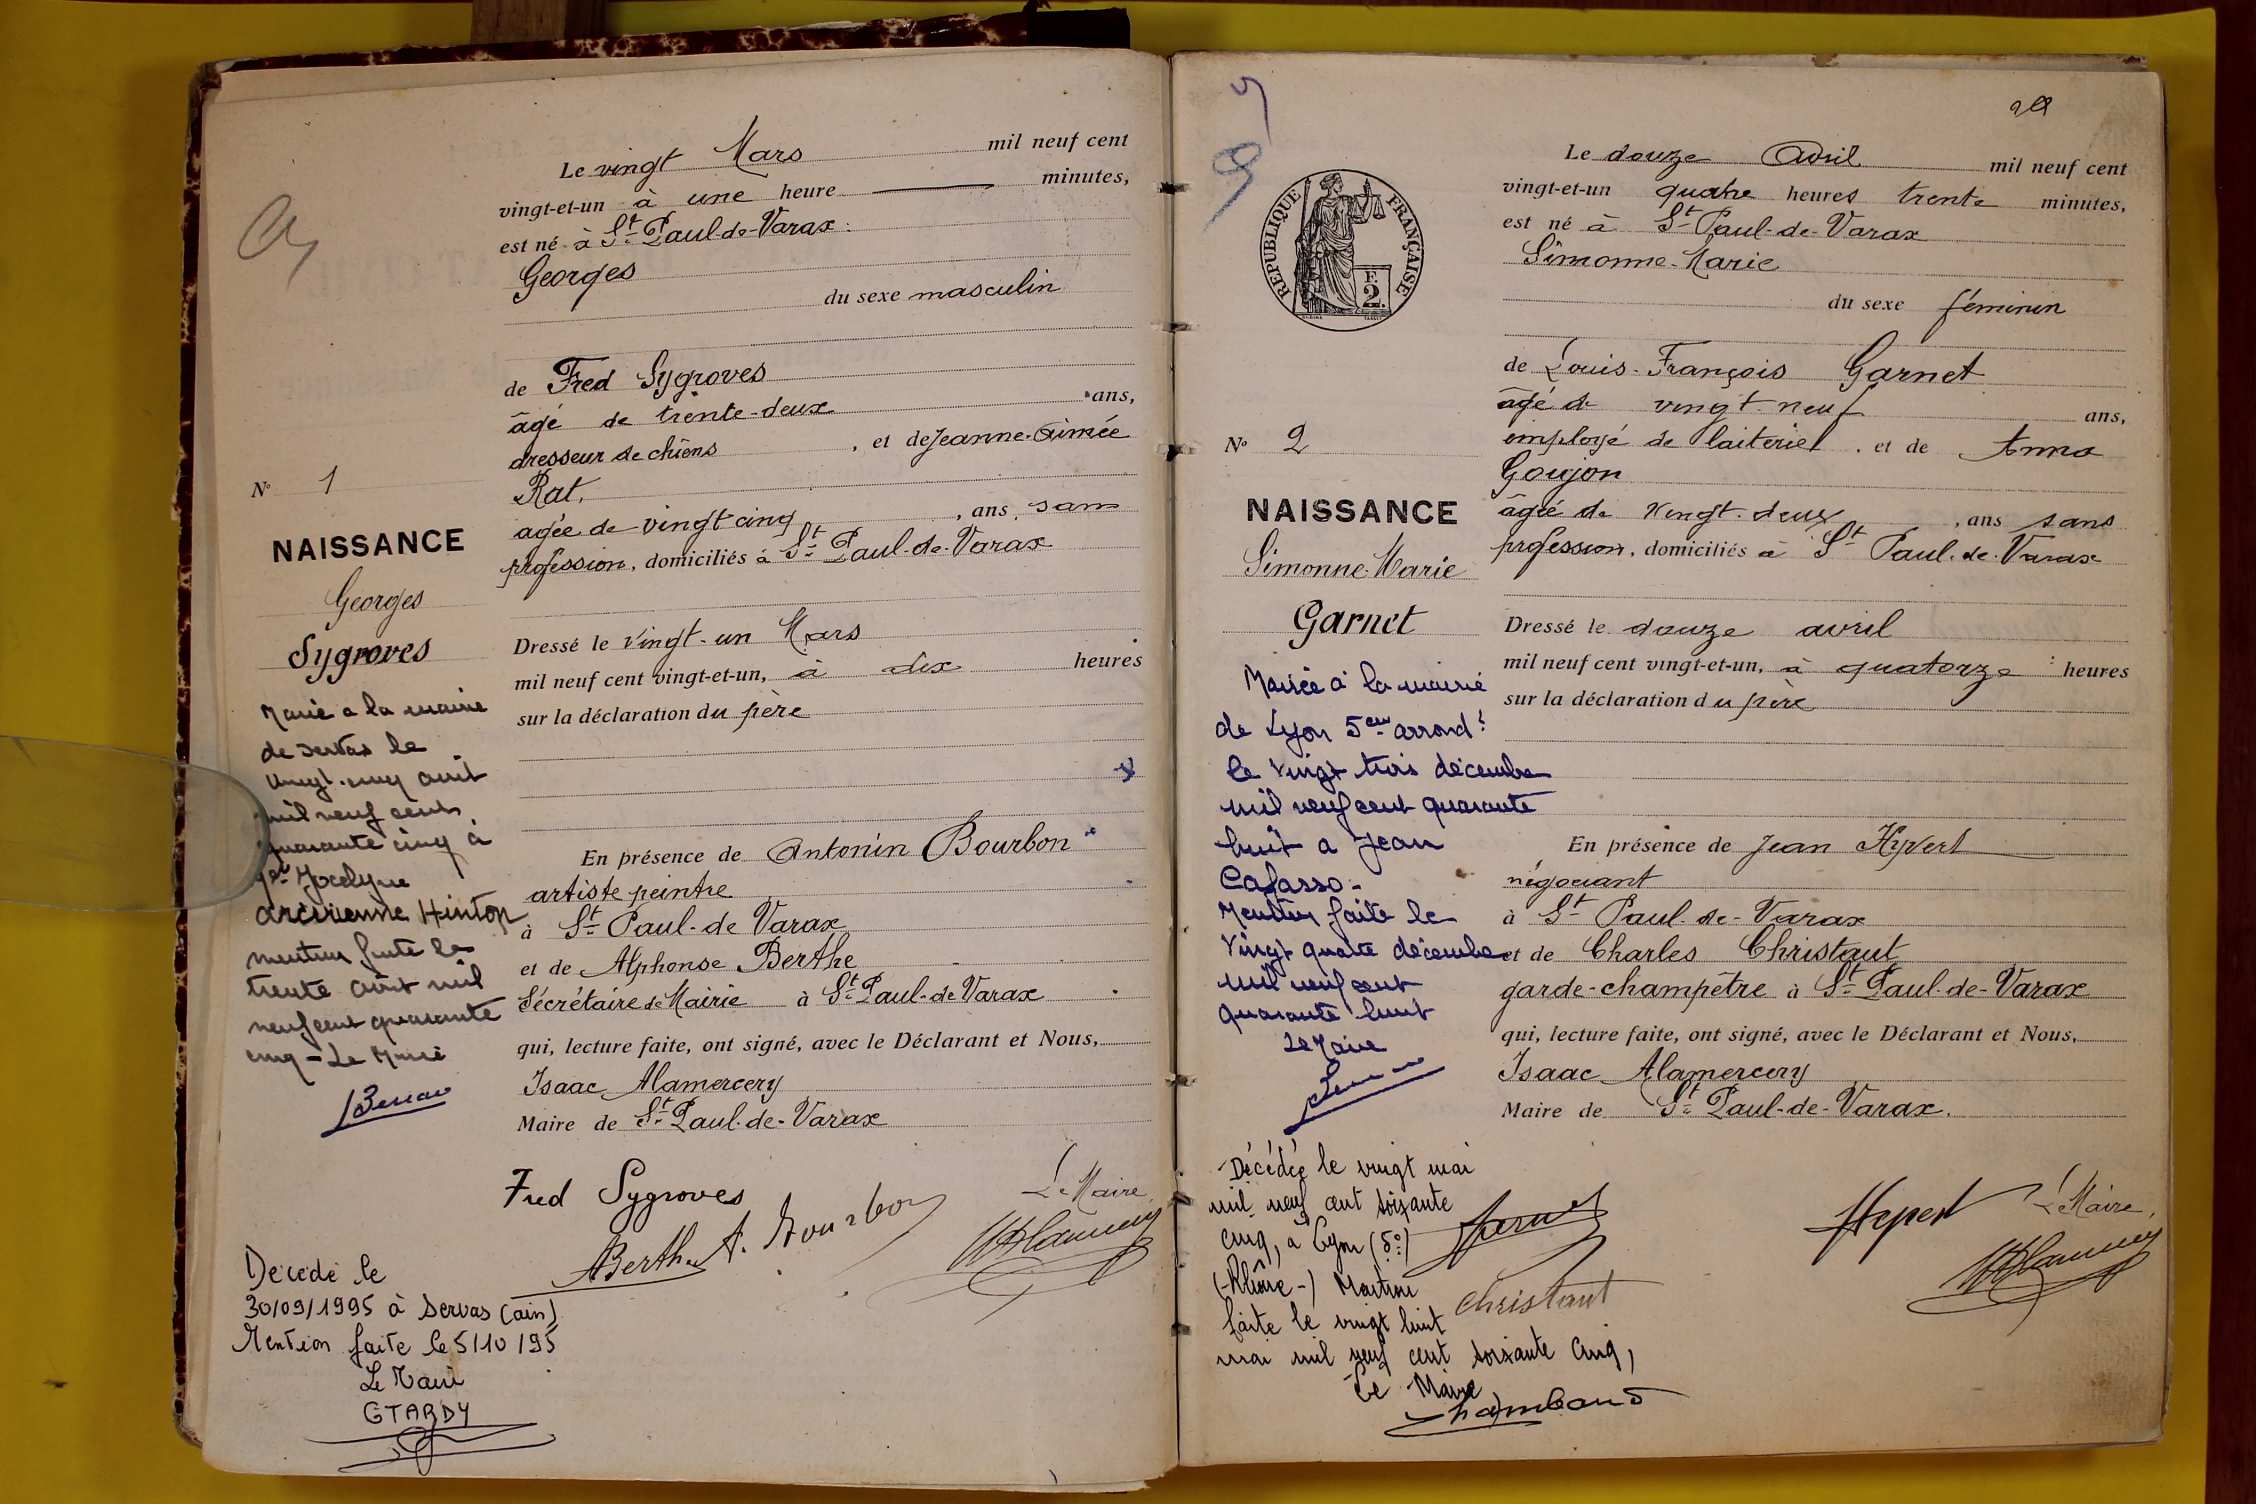 Le vingt Mars mil neuf cent
vingt-et-un à une heure minutes,
est né à St Paul-de-Varax
Georges
du sexe masculin
de Fred Sygroves
âgé de trente-deux ans,
dresseur de chiens, et de Jeanne-Aimée
Rat,
agée de vingt cinq, ans, sans
profession, domiciliés à St Paul-de-Varax
Dressé le vingt-un Mars
mil neuf cent vingt-et-un, à dix heures
sur la déclaration du père
En présence de Antonin Bourbon
artiste peintre
à St Paul-de Varax
et de Alphonse Berthe
Sécrétaire de Mairie à St Paul-de Varax
qui, lecture faite, ont signé, avec le Déclarant et Nous,
Isaac Alamercery
Maire de St Paul-de-Varax
Fred Sygroves
Le Maire,
ABerthe A. Bourbon
No 1
NAISSANCE
Georges
Sygroves
Marié a la mairie
de Servas le
vingt-cinq août
mil neuf cent
quarante cinq à
Jocelyne
Hinton
mention faite le
trente août mil
neuf cent quarante
cinq - Le Maire
Décédé le
30/09/1995 à Servas (ain)
Mention faite le 5/10/95
Le Maire
G TARDY
RÉPUBLIQUE FRANÇAISE
F.
2.
Le douze Avril mil neuf cent
vingt-et-un quatre heures trente minutes,
est né à St Paul-de-Varax
Simonne-Marie
du sexe féminin
de Louis-François Garnet
âgé de vingt-neuf ans,
employé de laiterie, et de Anna
Goujon
âgée de vingt-deux, ans sans
profession, domiciliés à St Paul-de-Varax
Dressé le douze avril
mil neuf cent vingt-et-un, à quatorze heures
sur la déclaration du père
En présence de Jean Hyvert
négociant
à St Paul-de-Varax
et de Charles Christaut
garde-champêtre à St Paul-de-Varax
qui, lecture faite, ont signé, avec le Déclarant et Nous,
Isaac Alamercery
Maire de St Paul-de-Varax.
Le Maire,
Christaut
No 2
NAISSANCE
Simonne-Marie
Garnet
Mariée à la mairie
de Lyon 5em arrondt
le vingt trois décembre
mil neuf cent quarante
huit a Jean
Cafasso-
Mention faite le
vingt quatre décembre
mil neuf cent
quarante huit
Le Maire
Décédée le vingt mai
mil neuf cent soixante
cinq, à Lyon
(-Rhône-) Mention
faite le vingt huit
mai mil neuf cent soixante cinq,
Le Maire
Chambaud